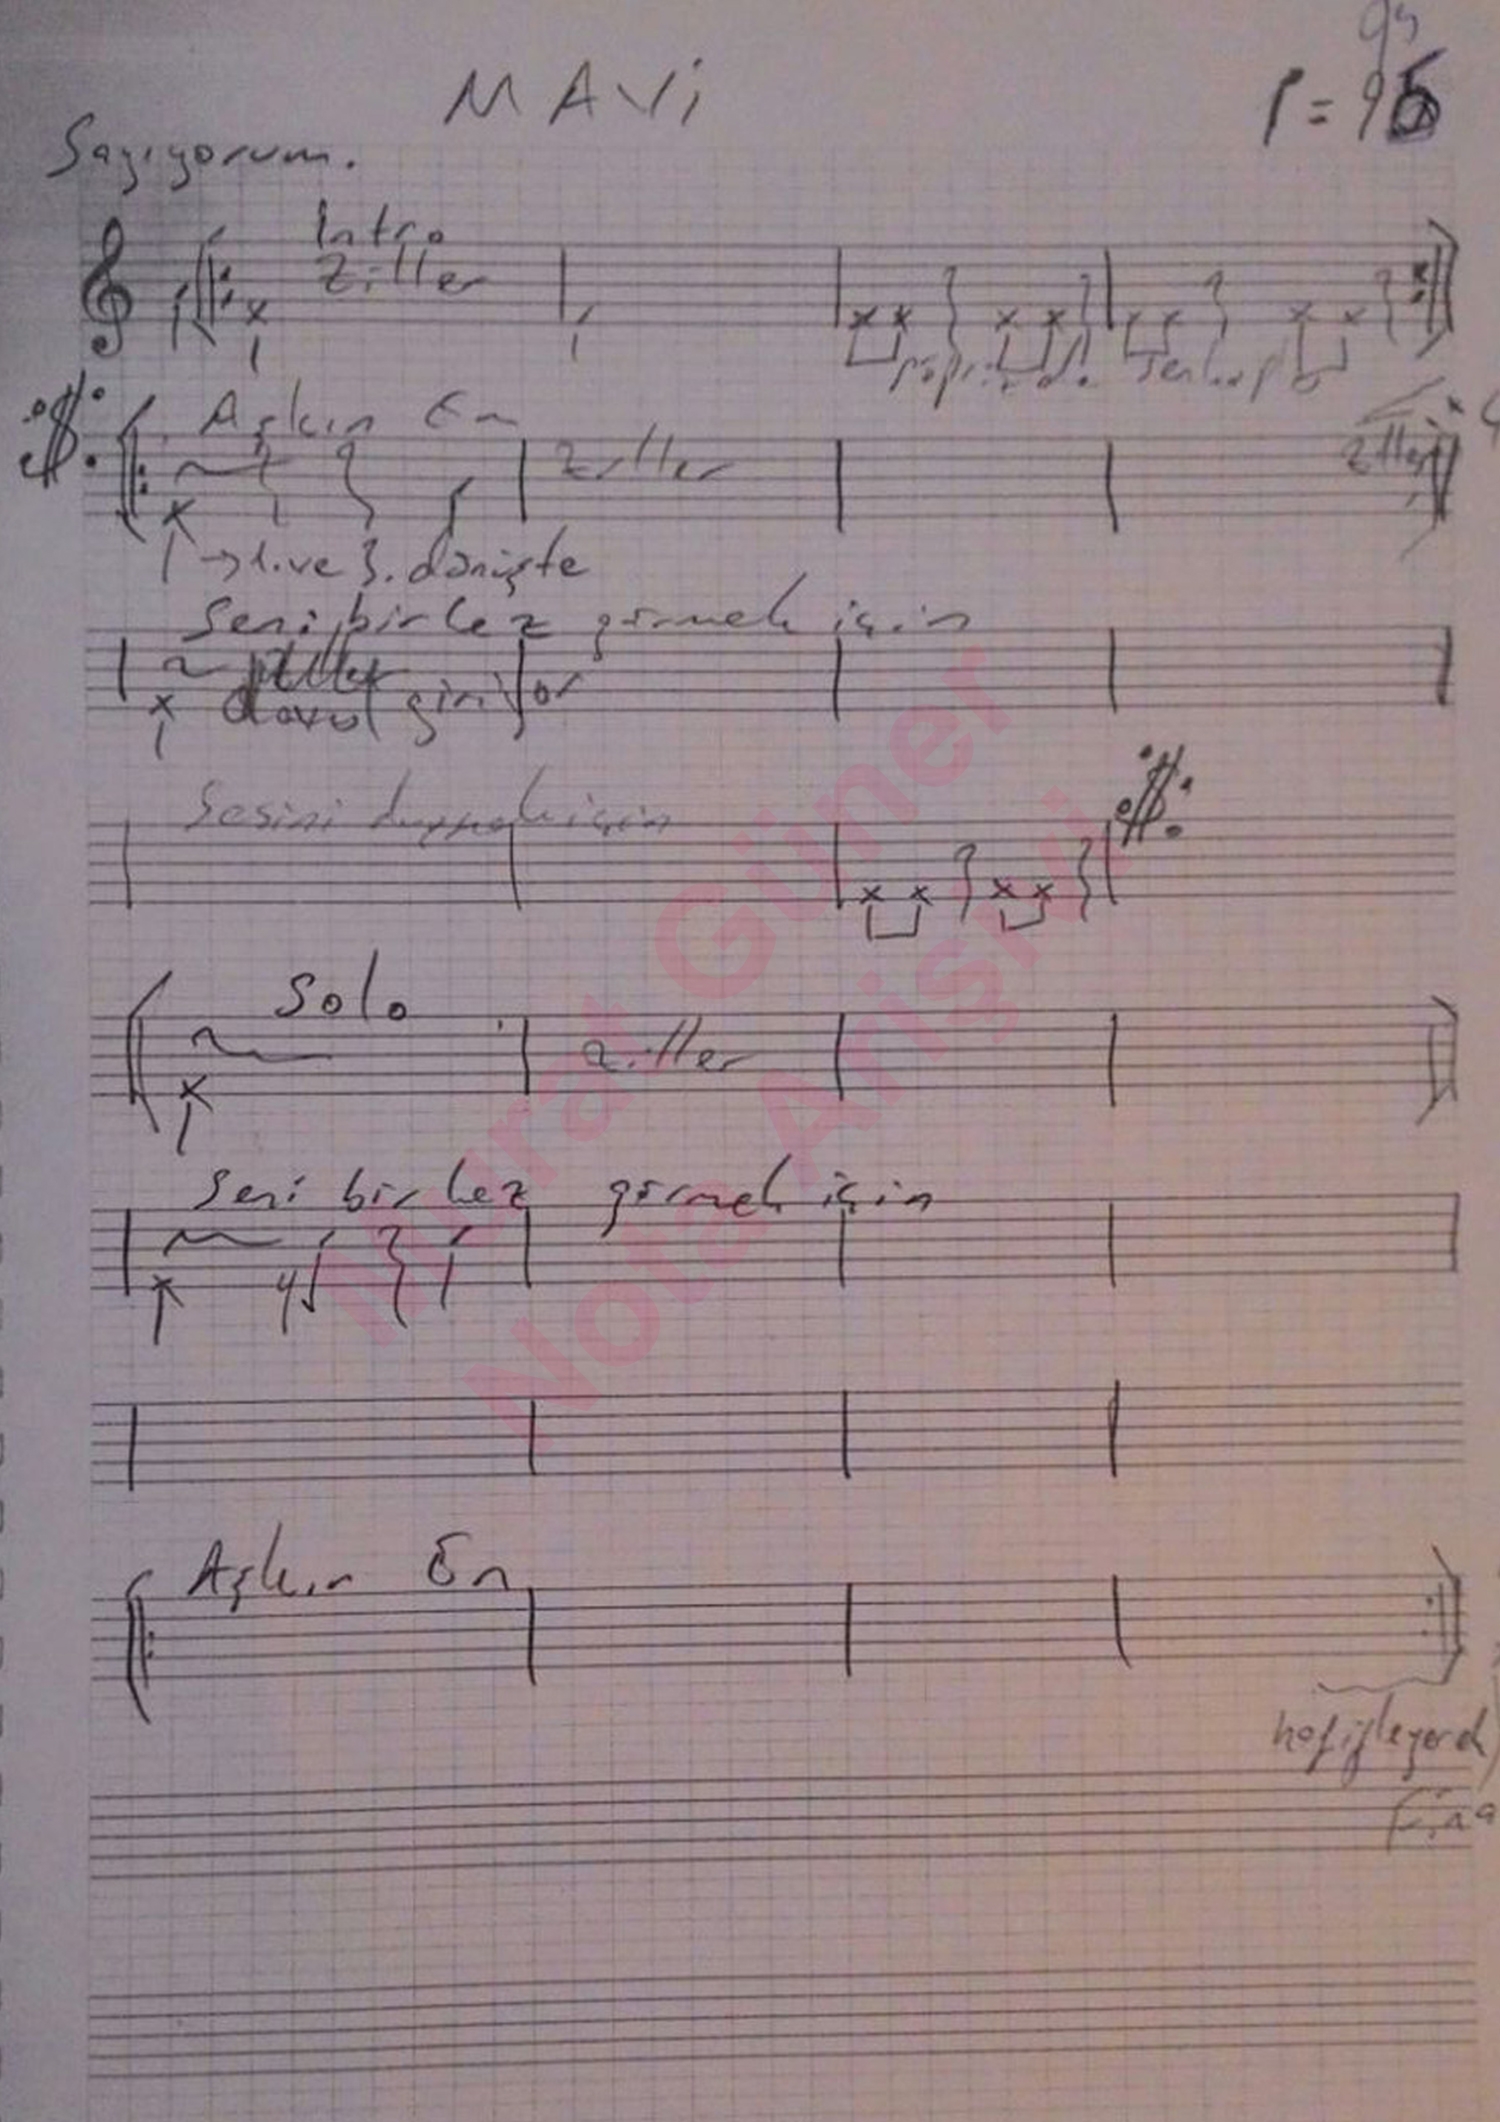 MAVİ
Sayıyorum.
Intro
Ziller
Aşkın En
Ziller
→ 1. ve 3. dönüşte
Seni bir kez görmek için
davul giriyor
Sesini duymak için
Solo
Ziller
Seni bir kez görmek için
Aşkın En
hafifleyerek
Murat Güner
Nota Arşivi